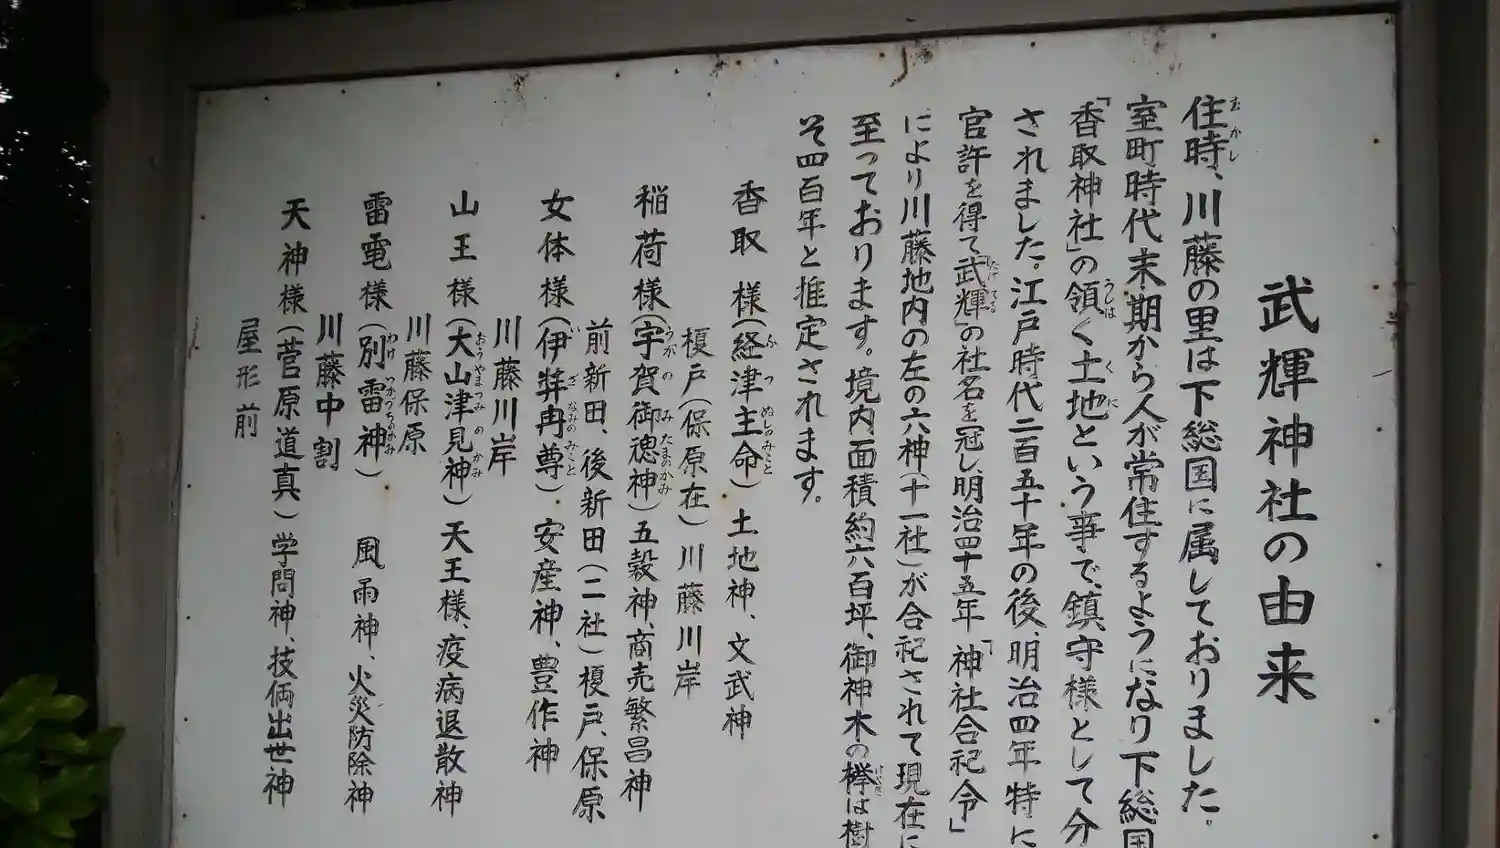 武輝神社の由来
住時、川藤の里は下総国に属しておりました。
室町時代末期から人が常住するようになり下総国
「香取神社」の領く土地という事で、鎮守様として分
されました。江戸時代二百五十年の後、明治四年特に
官許を得て「武輝」の社名を冠し明治四十五年「神社合祀令」
により川藤地内の左の六神(十一社)が合祀されて現在に
至っております。境内面積約六百坪、御神木の欅は樹
そ四百年と推定されます。
香取様(経津主命)土地神、文武神
榎戸(保原在)川藤川岸
稲荷様(宇賀御穂神)五穀神、商売繁昌神
前新田、後新田(二社)榎戸、保原
女体様(伊弉冉尊)安産神、豊作神
川藤川岸
山王様(大山津見神)天王様、疫病退散神
川藤保原
雷電様(別雷神)風雨神、火災防除神
川藤中割
天神様(菅原道真)学問神、技倆出世神
屋形前